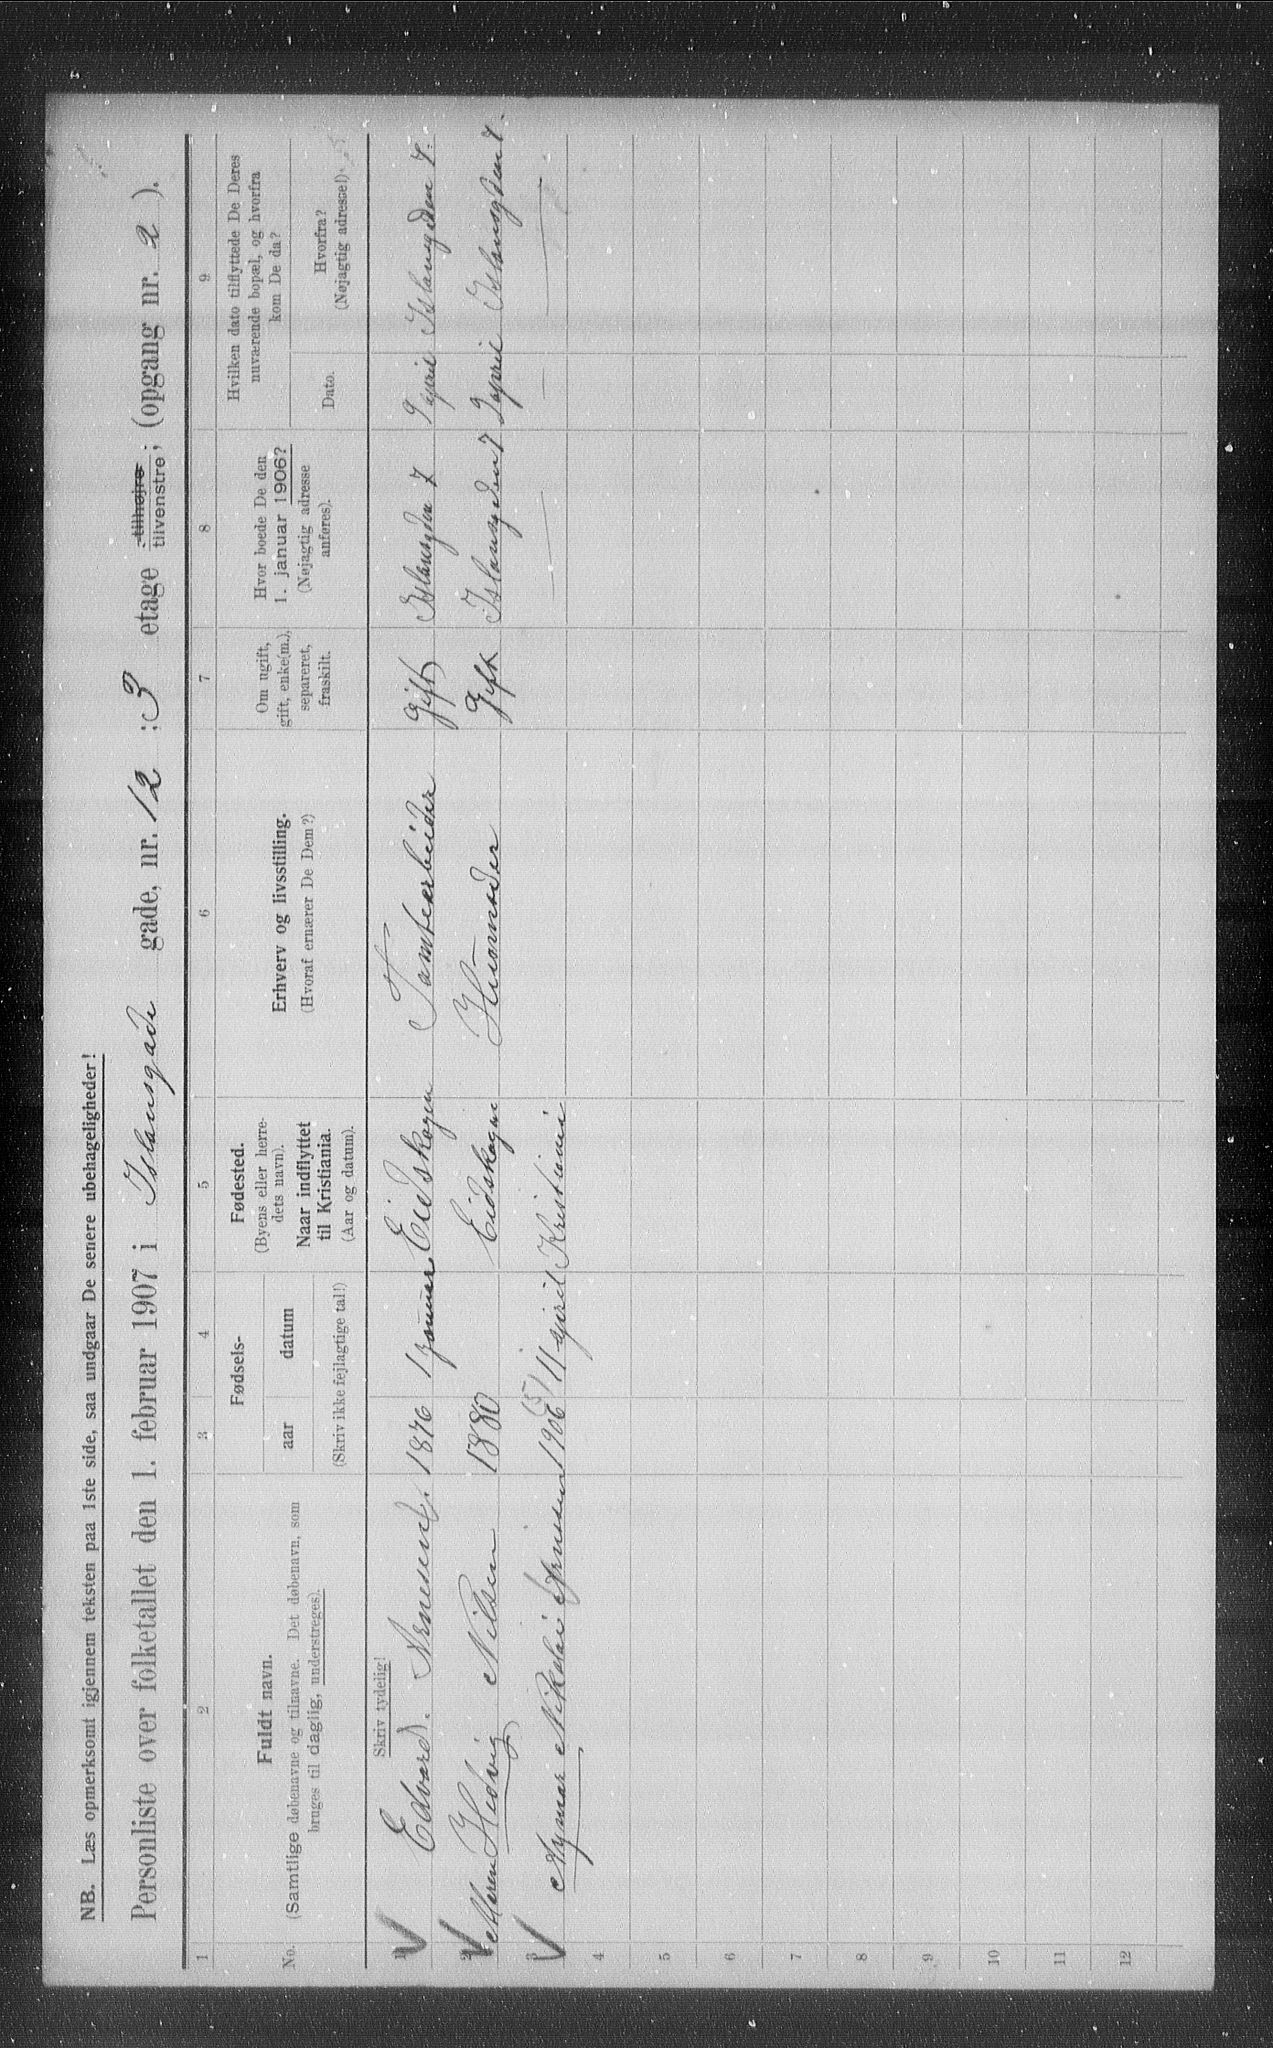 NB. Læs opmerksomt igjennem teksten paa 1ste side, saa undgaar De senere ubehageligheder!
Personliste over folketallet den 1. februar 1907 i Islansgade gade, nr. 12 : 3 etage tilhøjre tilvenstre; (opgang nr. 2 ).
1 2 3 4 5 6 7 8 9
No.
Fuldt navn.
(Samtlige døbenavne og tilnavne. Det døbenavn, som
bruges til daglig, understreges).
Fødsels-
aar datum
(Skriv ikke fejlagtige tal!)
Fødested.
(Byens eller herre-
dets navn).
Naar indflyttet
til Kristiania.
(Aar og datum).
Erhverv og livsstilling.
(Hvoraf ernærer De Dem?)
Om ugift,
gift, enke(m.),
separeret,
fraskilt.
Hvor boede De den
1. januar 1906?
(Nøjagtig adresse
anføres).
Hvilken dato tilflyttede De Deres
nuværende bopæl, og hvorfra
kom De da?
Dato.
Hvorfra?
(Nøjagtig adresse!)
Skriv tydelig!
1 Edvard. 1876 1 Eidskogen Tomtearbeider Gift Islansgden 7 Islansgden 7.
2 Maren Hedvig Nilsen 1880 Eidskogen Gift Islansgden 7 april Islansgden 7.
3 Nikolai 1906 11 april Kristiania — — —
4
5
6
7
8
9
10
11
12